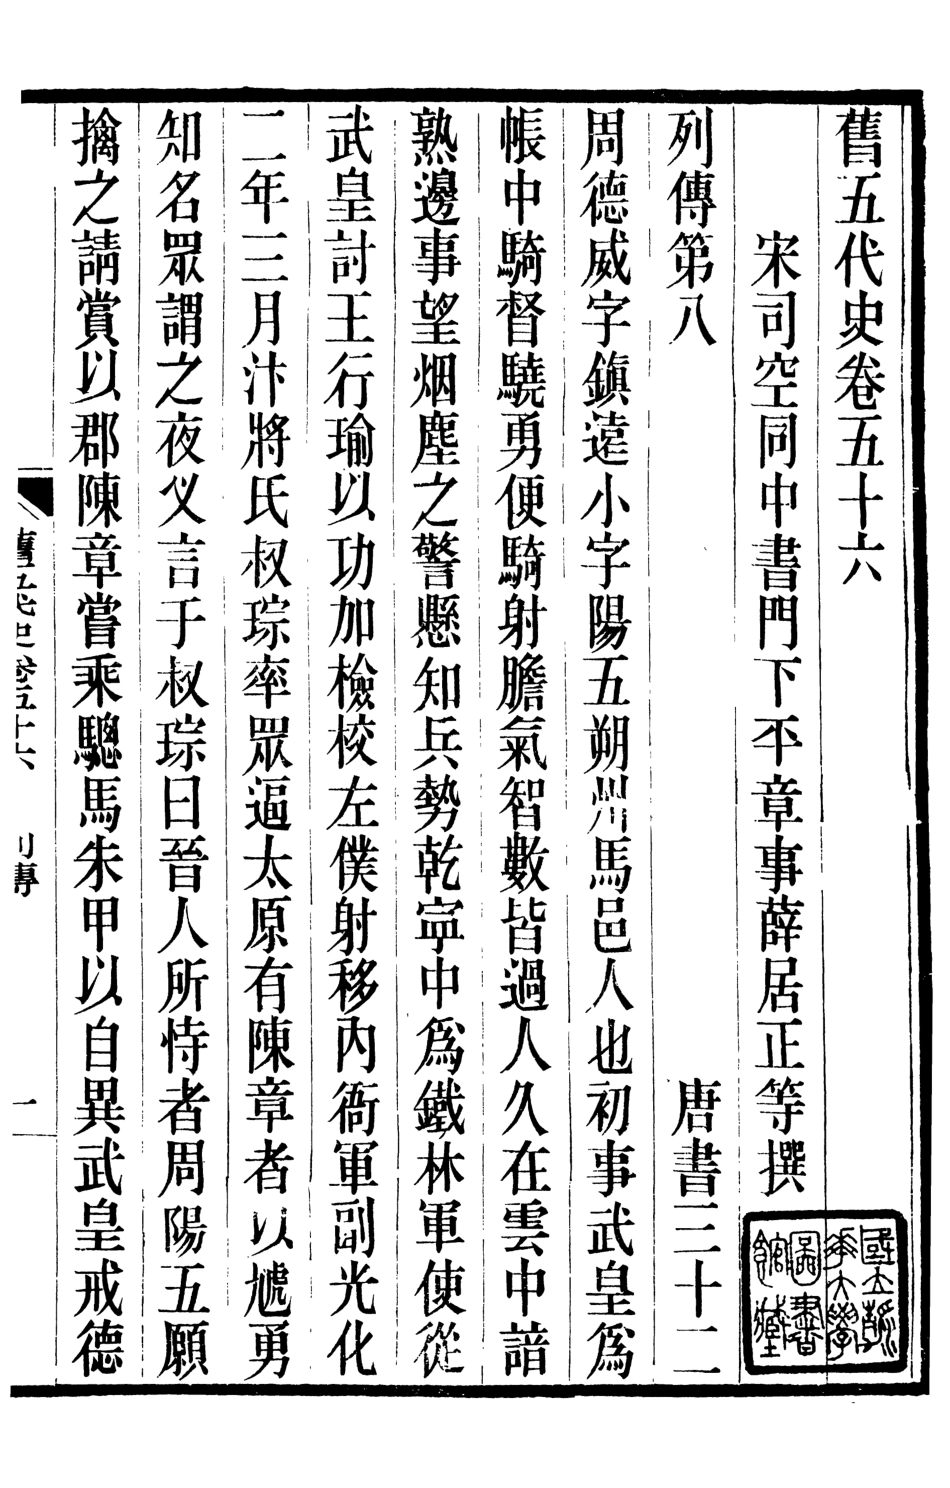 舊五代史卷五十六
宋司空同中書門下平章事薛居正等撰
列傳第八 唐書三十二
周德威字鎮遠小字陽五朔州馬邑人也初事武皇爲
帳中騎督驍勇便騎射膽氣智數皆過人久在雲中諳
熟邊事望烟塵之警懸知兵勢乾寜中爲鐵林軍使從
武皇討王行瑜以功加檢校左僕射移內衙軍副光化
二年三月汴將氏叔琮率眾逼太原有陳章者以虓勇
知名眾謂之夜义言于叔琮曰晉人所恃者周陽五願
擒之請賞以郡陳章嘗乘驄馬朱甲以自異武皇戒德
舊五代史卷五十六 列傳 一
國立清華大學圖書館藏